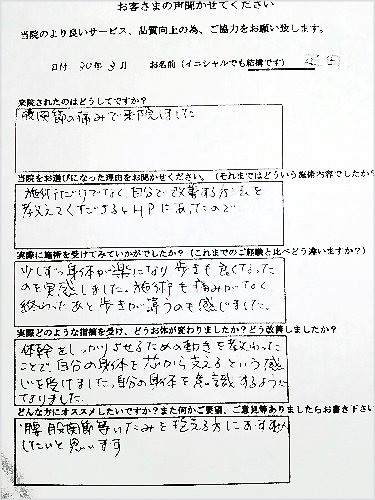 お客さまの声聞かせてください
当院のより良いサービス、品質向上の為、ご協力をお願い致します。
日付 30年 3月 お名前（イニシャルでも結構です）
来院されたのはどうしてですか？
股関節の痛みで来院しました
当院をお選びになった理由をお聞かせください。（それまではどういう施術内容でしたか？
施術だけでなく自分で改善する方法を
教えてくださるとHPにあったので
実際に施術を受けてみていかがでしたか？（これまでのご経験と比べどう違いますか？）
少しずつ身体が楽になり歩きも良くなった
のを実感しました。施術も痛みがなく
終わったあと歩きが違うのも感じました。
実際どのような指摘を受け、どうお体が変わりましたか？どう改善しましたか？
体幹をしっかりさせるための動きを教わった
ことで、自分の身体を芯から支えるという感
じを受けました。自分の身体を意識するように
なりました。
どんな方にオススメしたいですか？また何かご要望、ご意見等ありましたらお書き下さい
腰、股関節等いたみを抱える方におすすめ
したいと思います